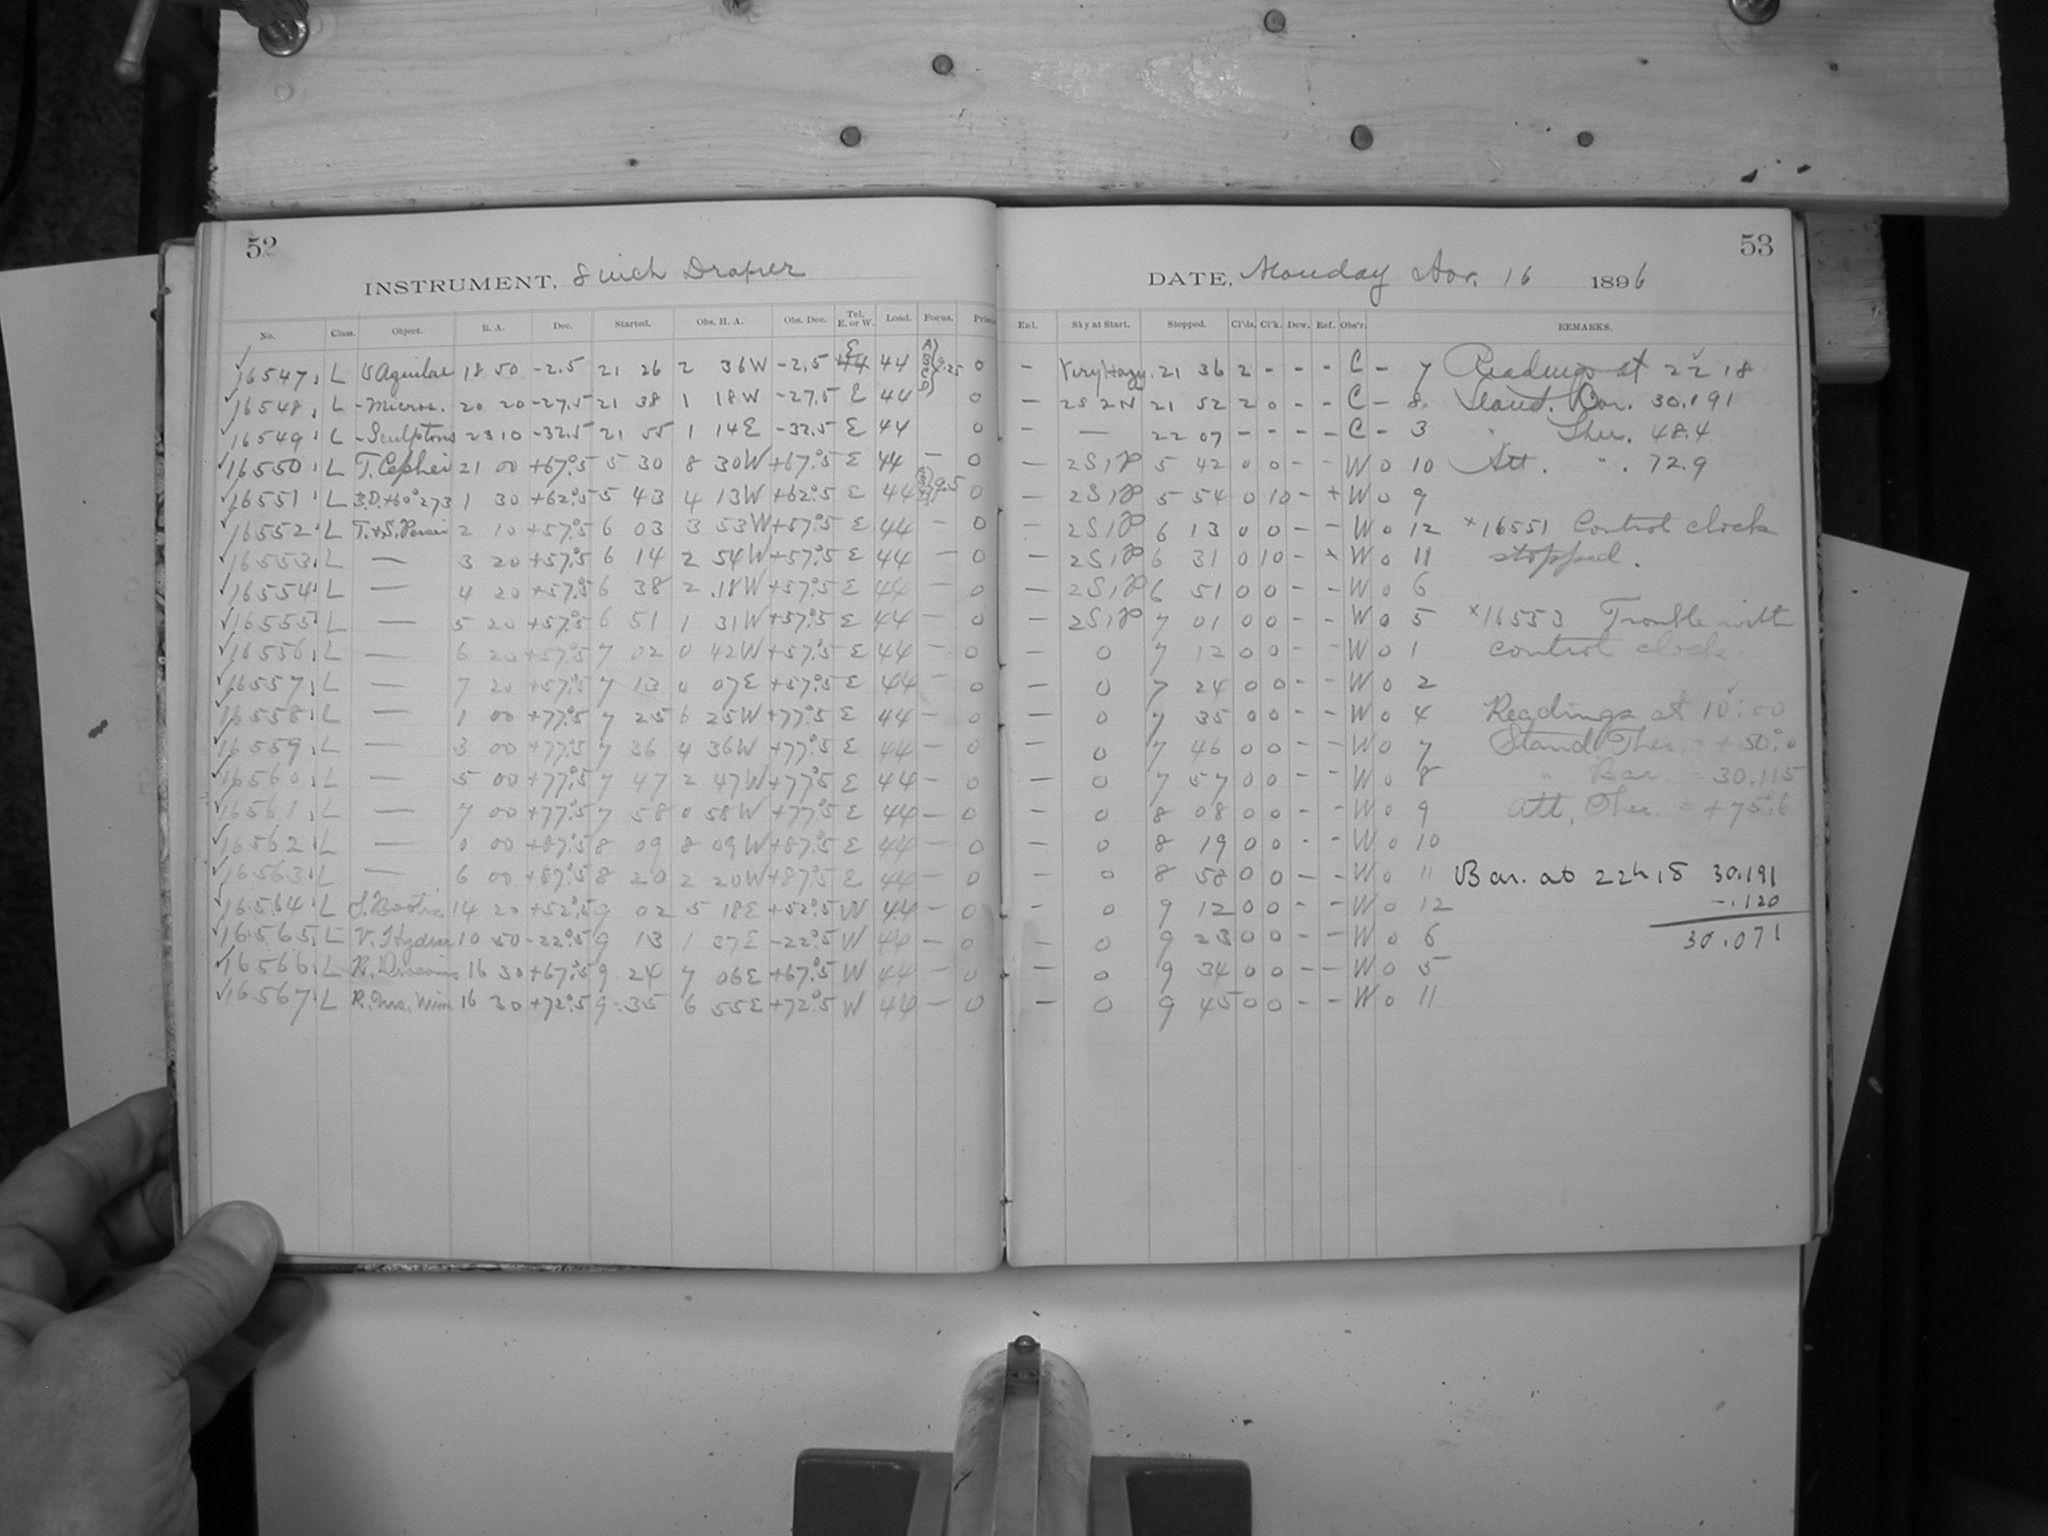 52
INSTRUMENT, 8 inch Draper
No. Class. Object. R. A. Dec. Started. Obs. H. A. Obs. Dec. Tel. E. or W. Load. Focus. Prism
16547 L V Aquilae 18 50 -2.5 21 26 2 36W -2.5 E 44 44 A B C D 9.25 0
16548 L -Micros. 20 20 -27.5 21 38 1 18W -27.5 E 44 0
16549 L -Sculptoris 23 10 -32.5 21 55 1 14E -32.5 E 44 0
16550 L T. Cephei 21 00 +67°.5 5 30 8 30W +67°.5 E 44 — 0
16551 L B.D.+60° 273 1 30 +62°.5 5 43 4 13W +62°.5 E 44 9.5 0
16552 L T.&S. Persei 2 10 +57°.5 6 03 3 53W +57°.5 E 44 — 0
16553 L — 3 20 +57°.5 6 14 2 54W +57°.5 E 44 — 0
16554 L — 4 20 +57°.5 6 38 2 18W +57°.5 E 44 — 0
16555 L — 5 20 +57°.5 6 51 1 31W +57°.5 E 44 — 0
16556 L — 6 20 +57°.5 7 02 0 42W +57°.5 E 44 — 0
16557 L — 7 20 +57°.5 7 13 0 07E +57°.5 E 44 — 0
16558 L — 1 00 +77°.5 7 25 6 25W +77°.5 E 44 — 0
16559 L — 3 00 +77°.5 7 36 4 36W +77°.5 E 44 — 0
16560 L — 5 00 +77°.5 7 47 2 47W +77°.5 E 44 — 0
16561 L — 7 00 +77°.5 7 58 0 58W +77°.5 E 44 — 0
16562 L — 0 00 +87°.5 8 09 8 09W +87°.5 E 44 — 0
16563 L — 6 00 +87°.5 8 20 2 20W +87°.5 E 44 — 0
16564 L S. Bootis 14 20 +52°.5 9 02 5 18E +52°.5 W 44 — 0
16565 L V. Hydrae 10 50 -22°.5 9 13 1 37E -22°.5 W 44 — 0
16566 L R. Draconis 16 30 +67°.5 9 24 7 06E +67°.5 W 44 — 0
16567 L R. Urs. Min 16 30 +72°.5 9 35 6 55E +72°.5 W 44 — 0
53
DATE, Monday Nov. 16 1896
Enl. Sky at Start. Stopped. Cl'ds. Cl'k. Dew. Ref. Obs'r. REMARKS.
— Very Hazy. 21 36 2 - - - C - 7 Readings at 22 18
— 2S 2N 21 52 2 0 - - C - 8 Stand. Bar. 30.191
- — 22 07 - - - - C - 3 " Ther. 48.4
— 2S1P 5 42 0 0 - - W 0 10 Att. " . 72.9
— 2S1P 5 54 0 10 - + W 0 9
— 2S1P 6 13 0 0 - - W 0 12 ×16551 Control clock
— 2S1P 6 31 0 10 - × W 0 11 stopped.
— 2S1P 6 51 0 0 - - W 0 6
— 2S1P 7 01 0 0 - - W 0 5 ×16553 Trouble with
— 0 7 12 0 0 - - W 0 1 control clock.
— 0 7 24 0 0 - - W 0 2
— 0 7 35 0 0 - - W 0 4 Readings at 10:00
— 0 7 46 0 0 - - W 0 7 Stand Ther. = +50°.0
— 0 7 57 0 0 - - W 0 8 " Bar. = 30.115
— 0 8 08 0 0 - - W 0 9 Att. Ther. = +75°.6
— 0 8 19 0 0 - - W 0 10
— 0 8 58 0 0 - - W 0 11 Bar. at 22h 18 30.191
— 0 9 12 0 0 - - W 0 12 -.120
— 0 9 23 0 0 - - W 0 6 30.071
— 0 9 34 0 0 - - W 0 5
— 0 9 45 0 0 - - W 0 11